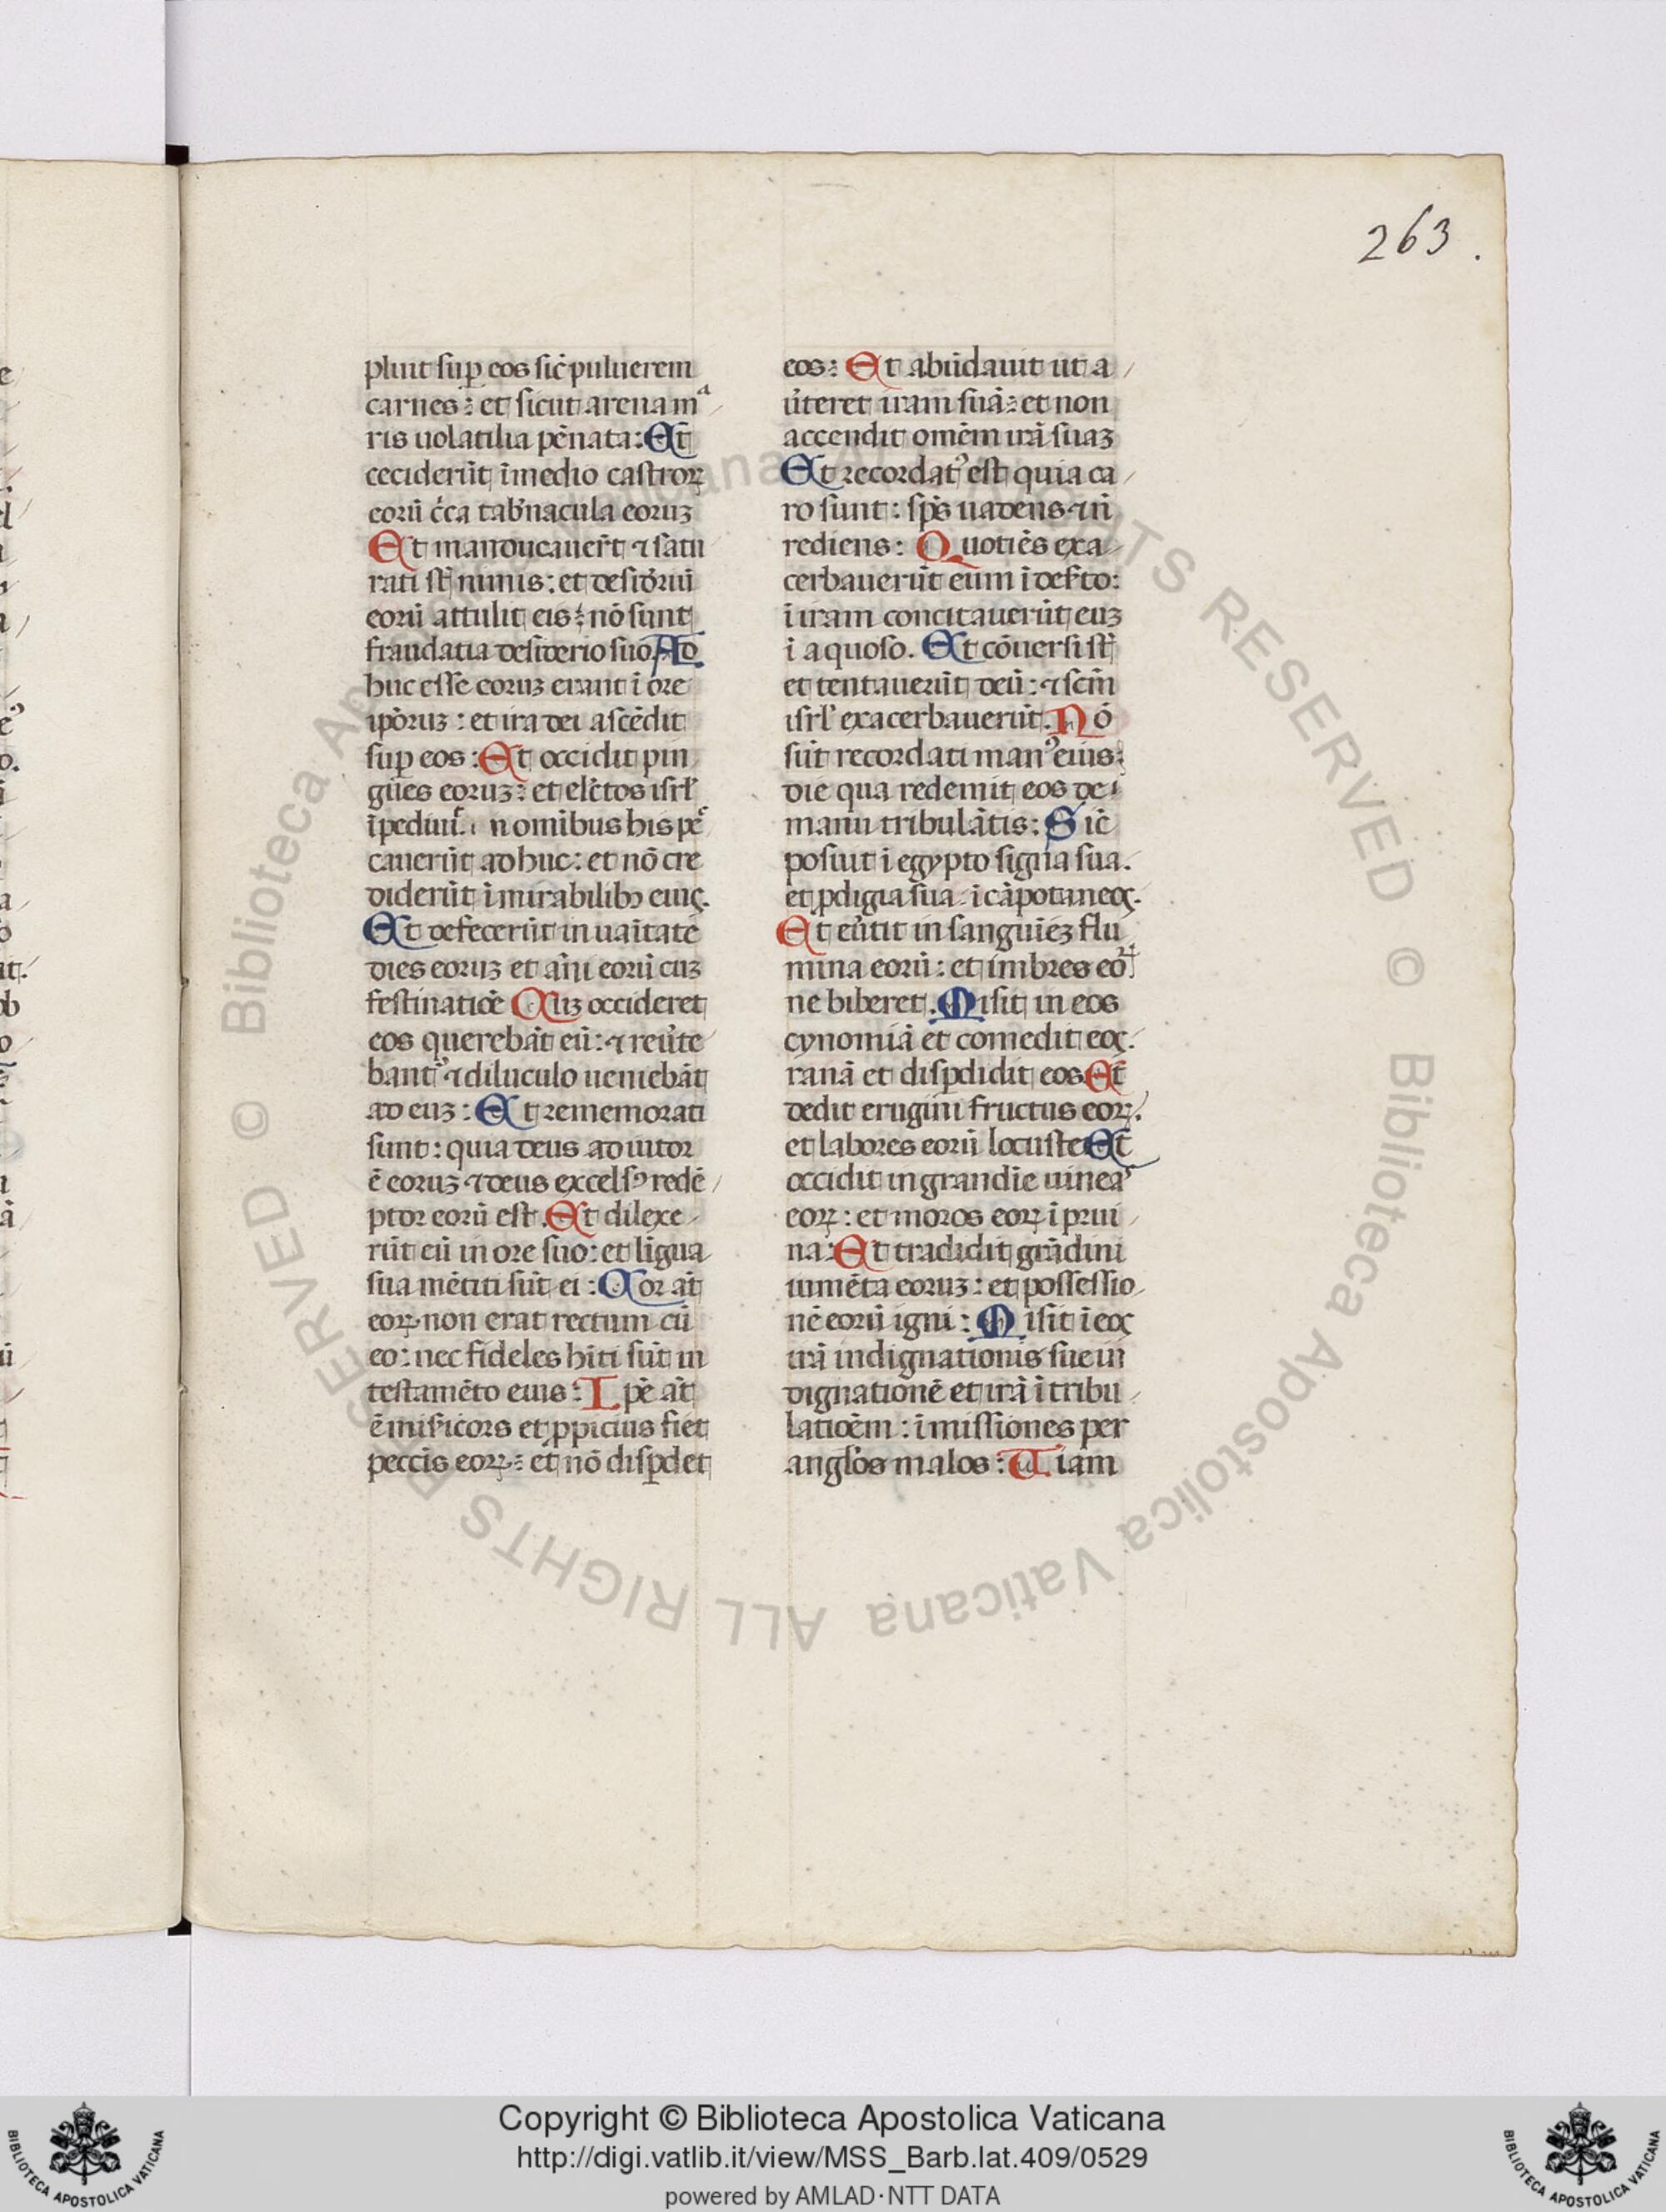 263.
pluit sup̱ eos sic̄ puluerem
carnes : et sicut arena mᵃ
ris uolatilia pēnata : Et̄
ceciderūt īmedio castroꝝ
eorū c̄ca tab̄nacula eoruꝫ
Et manducauer̄t ⁊ satu
rati sṫ nimis : et desid̓iū
eorū attulit eis : nō sunt
fraudati a desiderio suo. Ad
huc esse eoruꝫ erant ī ore
ip̄oruꝫ : et ira dei ascēdit
sup̱ eos : Et occidit pin
gues eoruꝫ : et elc̄tos isrl̓
īpediuit. in omībus his pec
cauerūt adhuc : et nō cre
diderūt ī mirabilibꝫ eius.
Et defecerūt in uaītate
dies eoruꝫ et āni eorū cuꝫ
festinatiōe Cuꝫ occideret
eos querebāt eū : ⁊ reu̓te
bant᷑ ⁊ diluculo ueniebāt
ad euꝫ : Et rememorati
sunt : quia deus adiutor
ē eoruꝫ ⁊ deus excelsꝰ redē
ptor eorū est. Et dilexe
rūt eū in ore suo : et līgua
sua mētiti sūt ei : Cor āt
eoꝝ non erat rectum cū
eo : nec fideles hīti sūt in
testamēto eius : Ipē āt
ē mis̓icors et ꝓpicius fiet
pecc̄is eoꝝ : et nō disꝑdet
eos : Et abūdauit ut a
u̓teret iram suā : et non
accendit omēm irā suaꝫ
Et recordatꝰ est quia ca
ro sunt : sp̄s uadens ⁊ n̄
rediens : Quotiēs exa
cerbauerūt eum ī def̓to :
ī iram concitauerūt euꝫ
ī aquoso. Et cōuersi sṫ
et tentauerūt deū : ⁊ sc̄m
isrl̓ exacerbauerūt. Nō
sūt recordati manꝰ eius :
die qua redemit eos de
manu tribulātis : Sic̄
posuit ī egypto signa sua.
et ꝓdigia sua ī cāpo taneos.
Et eu̓tit in sanguīeꝫ flu
mina eorū : et imbres eoꝝ
ne biberēt. Misit in eos
cynomiā et comedit eos.
ranā et disꝑdidit eos Et̄
dedit erugini fructus eoꝝ.
et labores eorū locuste Et̄
occidit in grandīe uineas
eoꝝ : et moros eoꝝ ī prui
na : Et tradidit grādini
iumēta eoruꝫ : et possessio
nē eorū igni : Misit ī eos
irā indignationis sue in
dignationē et irā ī tribu
latiōem : īmissiones per
angl̓os malos : Uiam
Copyright © Biblioteca Apostolica Vaticana
http://digi.vatlib.it/view/MSS_Barb.lat.409/0529
powered by AMLAD·NTT DATA
BIBLIOTECA APOSTOLICA VATICANA
BIBLIOTECA APOSTOLICA VATICANA
© Biblioteca Apostolica Vaticana ALL RIGHTS RESERVED © Biblioteca Apostolica Vaticana ALL RIGHTS RESERVED